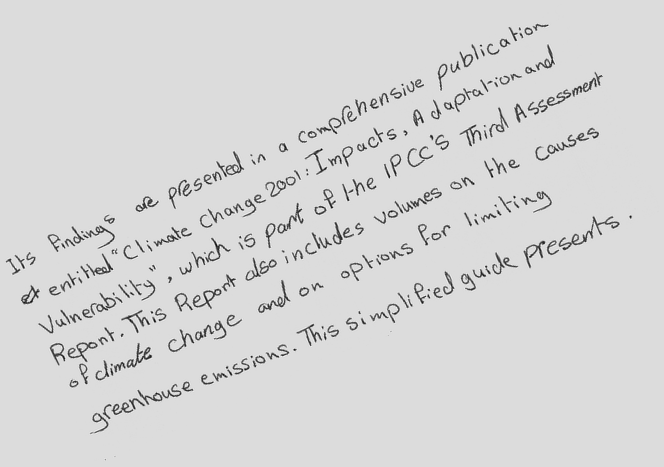 Its Findings are presented in a comprehensive publication
entitled "Climate Change 2001: Impacts, Adaptation and
Vulnerability", which is part of the IPCC's Third Assessment
Report. This Report also includes volumes on the causes
of climate change and on options for limiting
greenhouse emissions. This simplified guide presents.